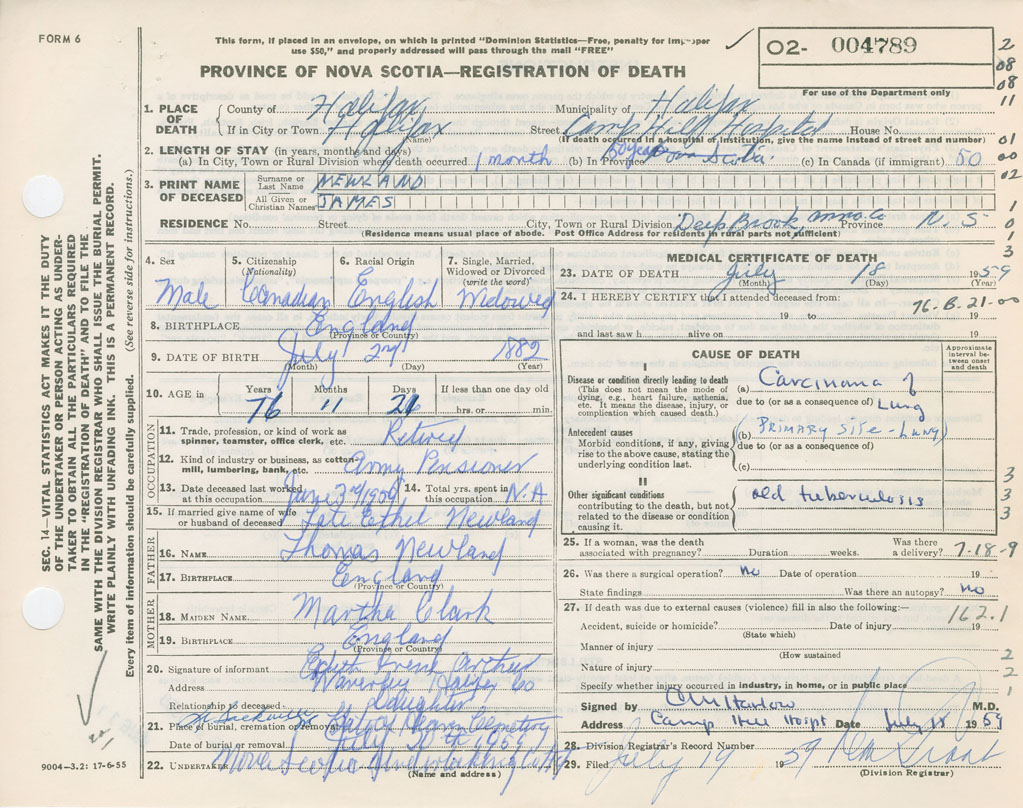 FORM 6
This form, if placed in an envelope, on which is printed "Dominion Statistics—Free, penalty for improper
use $50," and properly addressed will pass through the mail "FREE"
PROVINCE OF NOVA SCOTIA—REGISTRATION OF DEATH
O2- 004789
For use of the Department only
2
08
08
11
01
00
02
1
0
1
3
1. PLACE OF DEATH { County of Halifax Municipality of Halifax
If in City or Town Halifax Street Camp Hill Hospital House No.
(Name) (If death occurred in a hospital or institution, give the name instead of street and number)
2. LENGTH OF STAY (in years, months and days)
(a) In City, Town or Rural Division where death occurred 1 month (b) In Province 50 years Nova Scotia. (c) In Canada (if immigrant) 50
3. PRINT NAME OF DECEASED { Surname or Last Name NEWLAND
All Given or Christian Names JAMES
RESIDENCE No. Street City, Town or Rural Division Deep Brook Anna. Co Province N. S
(Residence means usual place of abode. Post Office Address for residents in rural parts not sufficient)
4. Sex 5. Citizenship (Nationality) 6. Racial Origin 7. Single, Married, Widowed or Divorced (write the word)
Male Canadian English Widowed
8. BIRTHPLACE England
(Province or Country)
9. DATE OF BIRTH July 2nd 1882
(Month) (Day) (Year)
10. AGE in Years Months Days If less than one day old
76 11 hrs. or min.
OCCUPATION
11. Trade, profession, or kind of work as spinner, teamster, office clerk, etc. Retired
12. Kind of industry or business, as cotton-mill, lumbering, bank, etc. Army Pensioner
13. Date deceased last worked at this occupation June 3rd 14. Total yrs. spent in this occupation N.A
15. If married give name of wife or husband of deceased Late Ethel Newland
FATHER
16. NAME Thomas Newland
17. BIRTHPLACE England
(Province or Country)
MOTHER
18. MAIDEN NAME Martha Clark
19. BIRTHPLACE England
(Province or Country)
20. Signature of informant Edith Irene
Address Waverley Halifax Co
Relationship to deceased daughter
21. Place of burial, cremation or removal Cemetery
Date of burial or removal July 1959
22. Undertaker Nova Scotia Undertaking
(Name and address)
MEDICAL CERTIFICATE OF DEATH
23. DATE OF DEATH July 18 1959
(Month) (Day)
24. I HEREBY CERTIFY that I attended deceased from:
76-B-21-00
19 to 19
and last saw h alive on 19
CAUSE OF DEATH
Approximate interval between onset and death
I
Disease or condition directly leading to death
(This does not mean the mode of dying, e.g., heart failure, asthenia, etc. It means the disease, injury, or complication which caused death.)
(a) Carcinoma of
due to (or as a consequence of) Lung
Antecedent causes
Morbid conditions, if any, giving rise to the above cause, stating the underlying condition last.
(b) (PRIMARY SITE - LUNG)
due to (or as a consequence of)
(c)
II
Other significant conditions
contributing to the death, but not related to the disease or condition causing it.
old tuberculosis
3
3
3
25. If a woman, was the death associated with pregnancy? Duration weeks. Was there a delivery?
7-18-9
26. Was there a surgical operation? no Date of operation 19
State findings Was there an autopsy? No
27. If death was due to external causes (violence) fill in also the following:—
162.1
Accident, suicide or homicide? Date of injury 19
(State which)
Manner of injury
(How sustained
2
2
1
Nature of injury
Specify whether injury occurred in industry, in home, or in public place
Signed by M.D.
Address Camp Hill Hospt Date July 18 1959
28. Division Registrar's Record Number
29. Filed July 19 1959
(Division Registrar)
SEC. 14—VITAL STATISTICS ACT MAKES IT THE DUTY
OF THE UNDERTAKER OR PERSON ACTING AS UNDER-
TAKER TO OBTAIN ALL THE PARTICULARS REQUIRED
IN THE "REGISTRATION OF DEATH" AND TO FILE THE
SAME WITH THE DIVISION REGISTRAR WHO SHALL ISSUE THE BURIAL PERMIT.
WRITE PLAINLY WITH UNFADING INK. THIS IS A PERMANENT RECORD.
Every item of information should be carefully supplied. (See reverse side for instructions.)
9004-3.2: 17-6-55